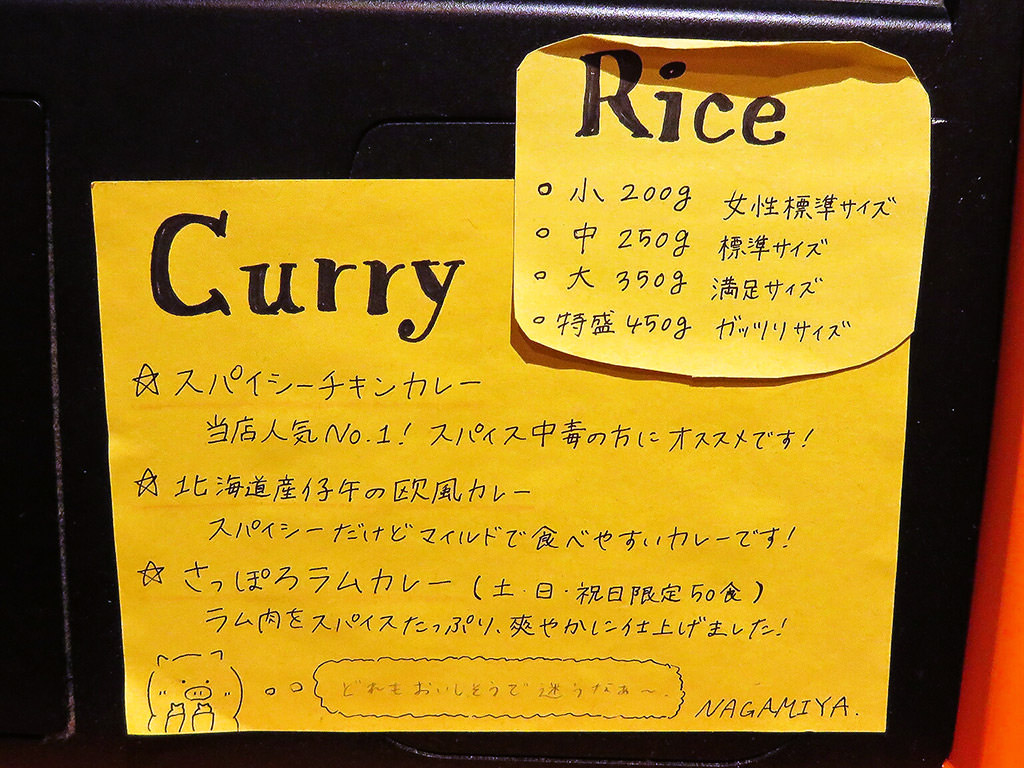 Rice
○ 小 200g 女性標準サイズ
○ 中 250g 標準サイズ
○ 大 350g 満足サイズ
○ 特盛 450g ガッツリサイズ
Curry
☆ スパイシーチキンカレー
当店人気No.1! スパイス中毒の方にオススメです!
☆ 北海道産仔牛の欧風カレー
スパイシーだけどマイルドで食べやすいカレーです!
☆ さっぽろラムカレー (土・日・祝日限定50食)
ラム肉をスパイスたっぷり、爽やかに仕上げました!
どれもおいしそうで迷うなぁ〜.
NAGAMIYA.